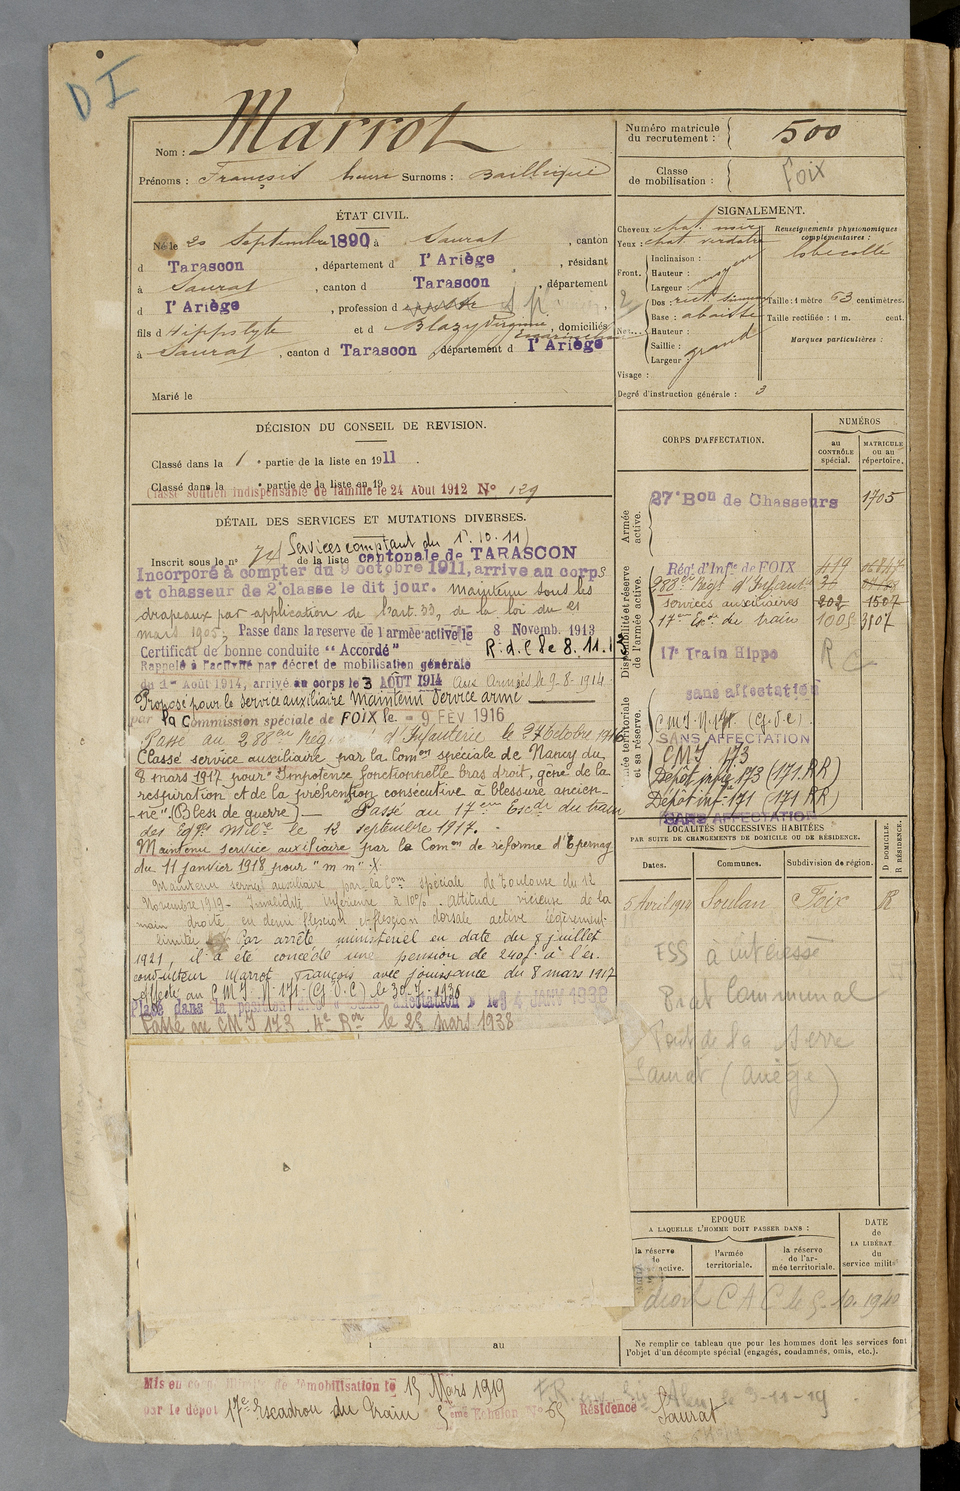 D I
Marrot
Nom :
Prénoms : François Surnoms :
ÉTAT CIVIL.
Né le 20 Septembre 1890 à Saurat , canton
d Tarascon , département d l'Ariège , résidant
à Saurat , canton d Tarascon , département
d l'Ariège , profession d
fils d Hippolyte et d Blazy Virginie , domiciliés
à Saurat , canton d Tarascon , département d l'Ariège
Marié le
DÉCISION DU CONSEIL DE REVISION.
Classé dans la 1 e partie de la liste en 1911 .
Classé dans la e partie de la liste en 19
Classé soutien indispensable de famille le 24 Aout 1912 N° 129
DÉTAIL DES SERVICES ET MUTATIONS DIVERSES.
(Services comptant du 1.10.11)
Inscrit sous le n° 74 de la liste cantonale de TARASCON
Incorporé à compter du 9 octobre 1911, arrive au corps
et chasseur de 2e classe le dit jour. maintenu sous les
drapeaux par application de l'art. 33, de la loi du 21
mars 1905, Passe dans la reserve de l'armée active le 8 Novemb. 1913
Certificat de bonne conduite "Accordé" R.d.C le 8.11.13
Rappelé à l'activité par décret de mobilisation générale
du 1er Août 1914, arrivé au corps le 3 AOUT 1914 Aux Armées le 9-8-1914
Proposé pour le service auxiliaire Maintenu Service armé
par la Commission spéciale de FOIX le 9 FEV 1916
Passé au 288eme Régiment d'Infanterie le 27 Octobre 1916
Classé service auxiliaire par la Comon spéciale de Nancy du
8 mars 1917 pour "Impotence fonctionnelle bras droit, gêne de la
respiration et de la préhension consécutive à blessure ancien-
-ne". (Bless. de guerre) Passé au 17eme Escdr du train
des Eqges Milres le 12 septembre 1917.
Maintenu service auxiliaire par la Comon de réforme d'Epernay
du 11 janvier 1918 pour "m m" X.
Maintenu service auxiliaire par la Com spéciale de Toulouse du 12
Novembre 1919 - Invalidité inférieure à 10% . Attitude vicieuse de la
main droite en demi flexion et flexion dorsale active légèrement
limitée Par arrêté ministériel en date du 8 juillet
1921, il a été concédé une pension de 240f à l'ex.
conducteur Marrot François avec jouissance du 8 mars 1917
affecté au C M J N° 171 (G.V.C) le 30-7-1936
Placé dans la position dite " sans affectation " le 4 JANV 1938
Passé au CMJ 173 . 4e Ron le 25 mars 1938
1 au
Mis en congé illimité de démobilisation le 15 Mars 1919
par le dépôt 17e Escadron du Train 5eme Echelon N° 65 Résidence Saurat
Numéro matricule
du recrutement : 500
Classe
de mobilisation : Foix
SIGNALEMENT.
Cheveux chat. noir
Yeux : chat verdatre
Renseignements physionomiques
complémentaires :
lobe collé
Front.
Inclinaison :
Hauteur : moyen
Largeur :
Nez.
Dos : rect. sinueux
Base : abaissée
Hauteur :
Saillie : grand
Largeur :
Visage :
Degré d'instruction générale : 3
Taille : 1 mètre 63 centimètres.
Taille rectifiée : 1 m. cent.
Marques particulières :
CORPS D'AFFECTATION.
NUMÉROS
au
CONTRÔLE
spécial.
MATRICULE
ou au
répertoire.
Armée
active.
27e Bon de Chasseurs 1705
Disponibilité et réserve
de l'armée active.
Régt d'Infie de FOIX
288eme Régt d'Infanterie
services auxiliaires 202 1507
17eme Eon du train 1005 3107
17e Train Hippo R
Armée territoriale
et sa réserve.
sans affectation
C M J N° 171 (G.V.C).
SANS AFFECTATION
CMJ 173
Dépôt infie 173 (171 RR)
Dépôt infie 171 (171 RR)
SANS AFFECTATION
LOCALITÉS SUCCESSIVES HABITÉES
PAR SUITE DE CHANGEMENTS DE DOMICILE OU DE RÉSIDENCE.
D DOMICILE.
R RÉSIDENCE.
Dates.
Communes.
Subdivision de région.
5 Avril 1914 Soulan Foix R
ESS à intéressé
Prat Communal
Pont de la Serre
Saurat (Ariège)
EPOQUE
A LAQUELLE L'HOMME DOIT PASSER DANS :
la réserve
de
active.
l'armée
territoriale.
la réserve
de l'ar-
mée territoriale.
DATE
de
LA LIBÉRAT.
du
service milit
droit C A C le 5-10-1940
Ne remplir ce tableau que pour les hommes dont les services font
l'objet d'un décompte spécial (engagés, condamnés, omis, etc.).
le 3-11-19